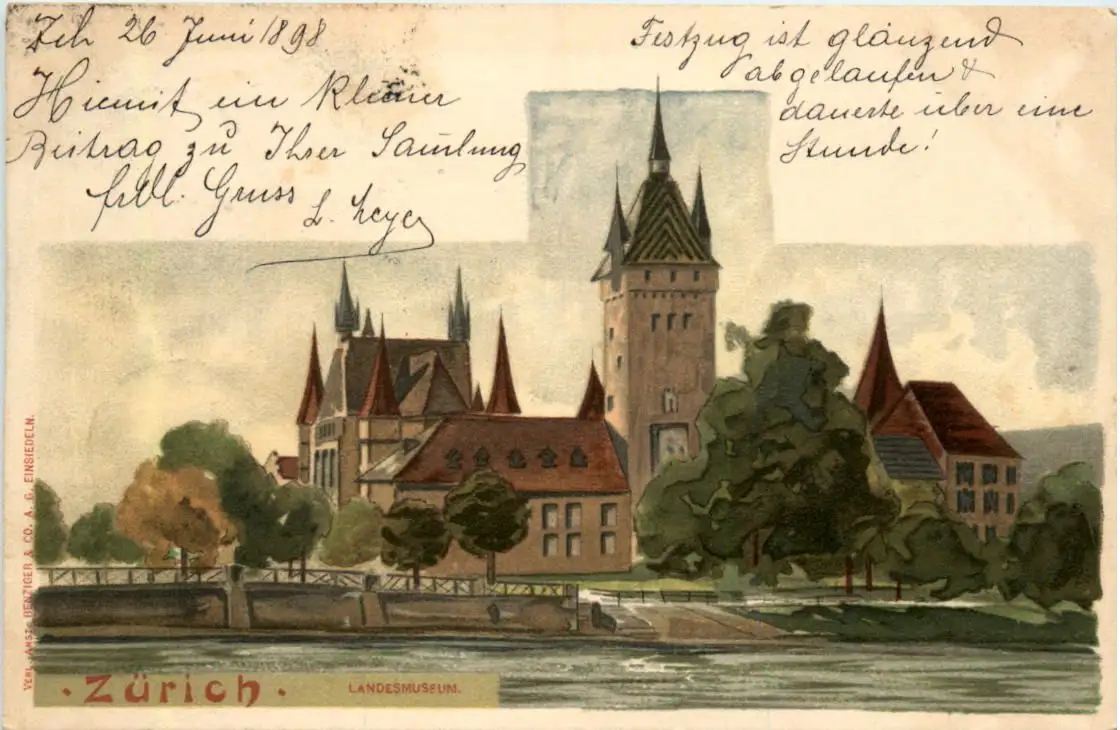 Zch 26 Juni 1898
Hiemit ein kleiner
Beitrag zu Ihrer Samlung
frdl. Gruss
L. Meyer
Festzug ist glänzend
abgelaufen &
dauerte über eine
Stunde!
VERL.-ANST. BENZIGER & CO. A. G. EINSIEDELN.
· Zürich ·
LANDESMUSEUM.